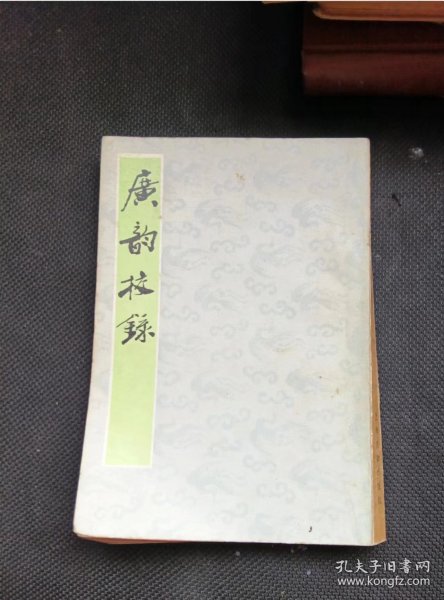 廣韵校錄
孔夫子旧书网
www.kongfz.com